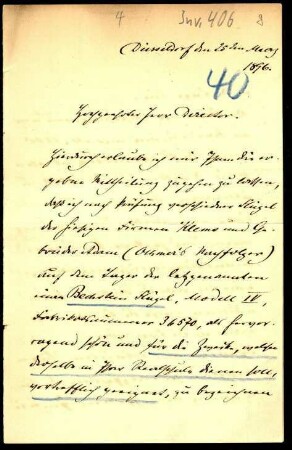 4 Inv. 406 8
Düsseldorf den 25ten März
1896.
40
Hochgeehrter Herr Director.
Hierdurch erlaube ich mir Ihnen die er-
gebene Mittheilung zugehen zu lassen,
daß ich nach Prüfung verschiedener Flügel
der hiesigen Firmen Klems und Ge-
brüder Adam (Nachfolger)
auf dem Lager der letztgenannten
einen Bechstein Flügel, Modell IV,
Fabriknummer 34570, als hervor-
ragend schön und für die Zwecke, welchen
derselbe in Ihrer Realschule dienen soll,
vortrefflich geeignet, zu bezeichnen